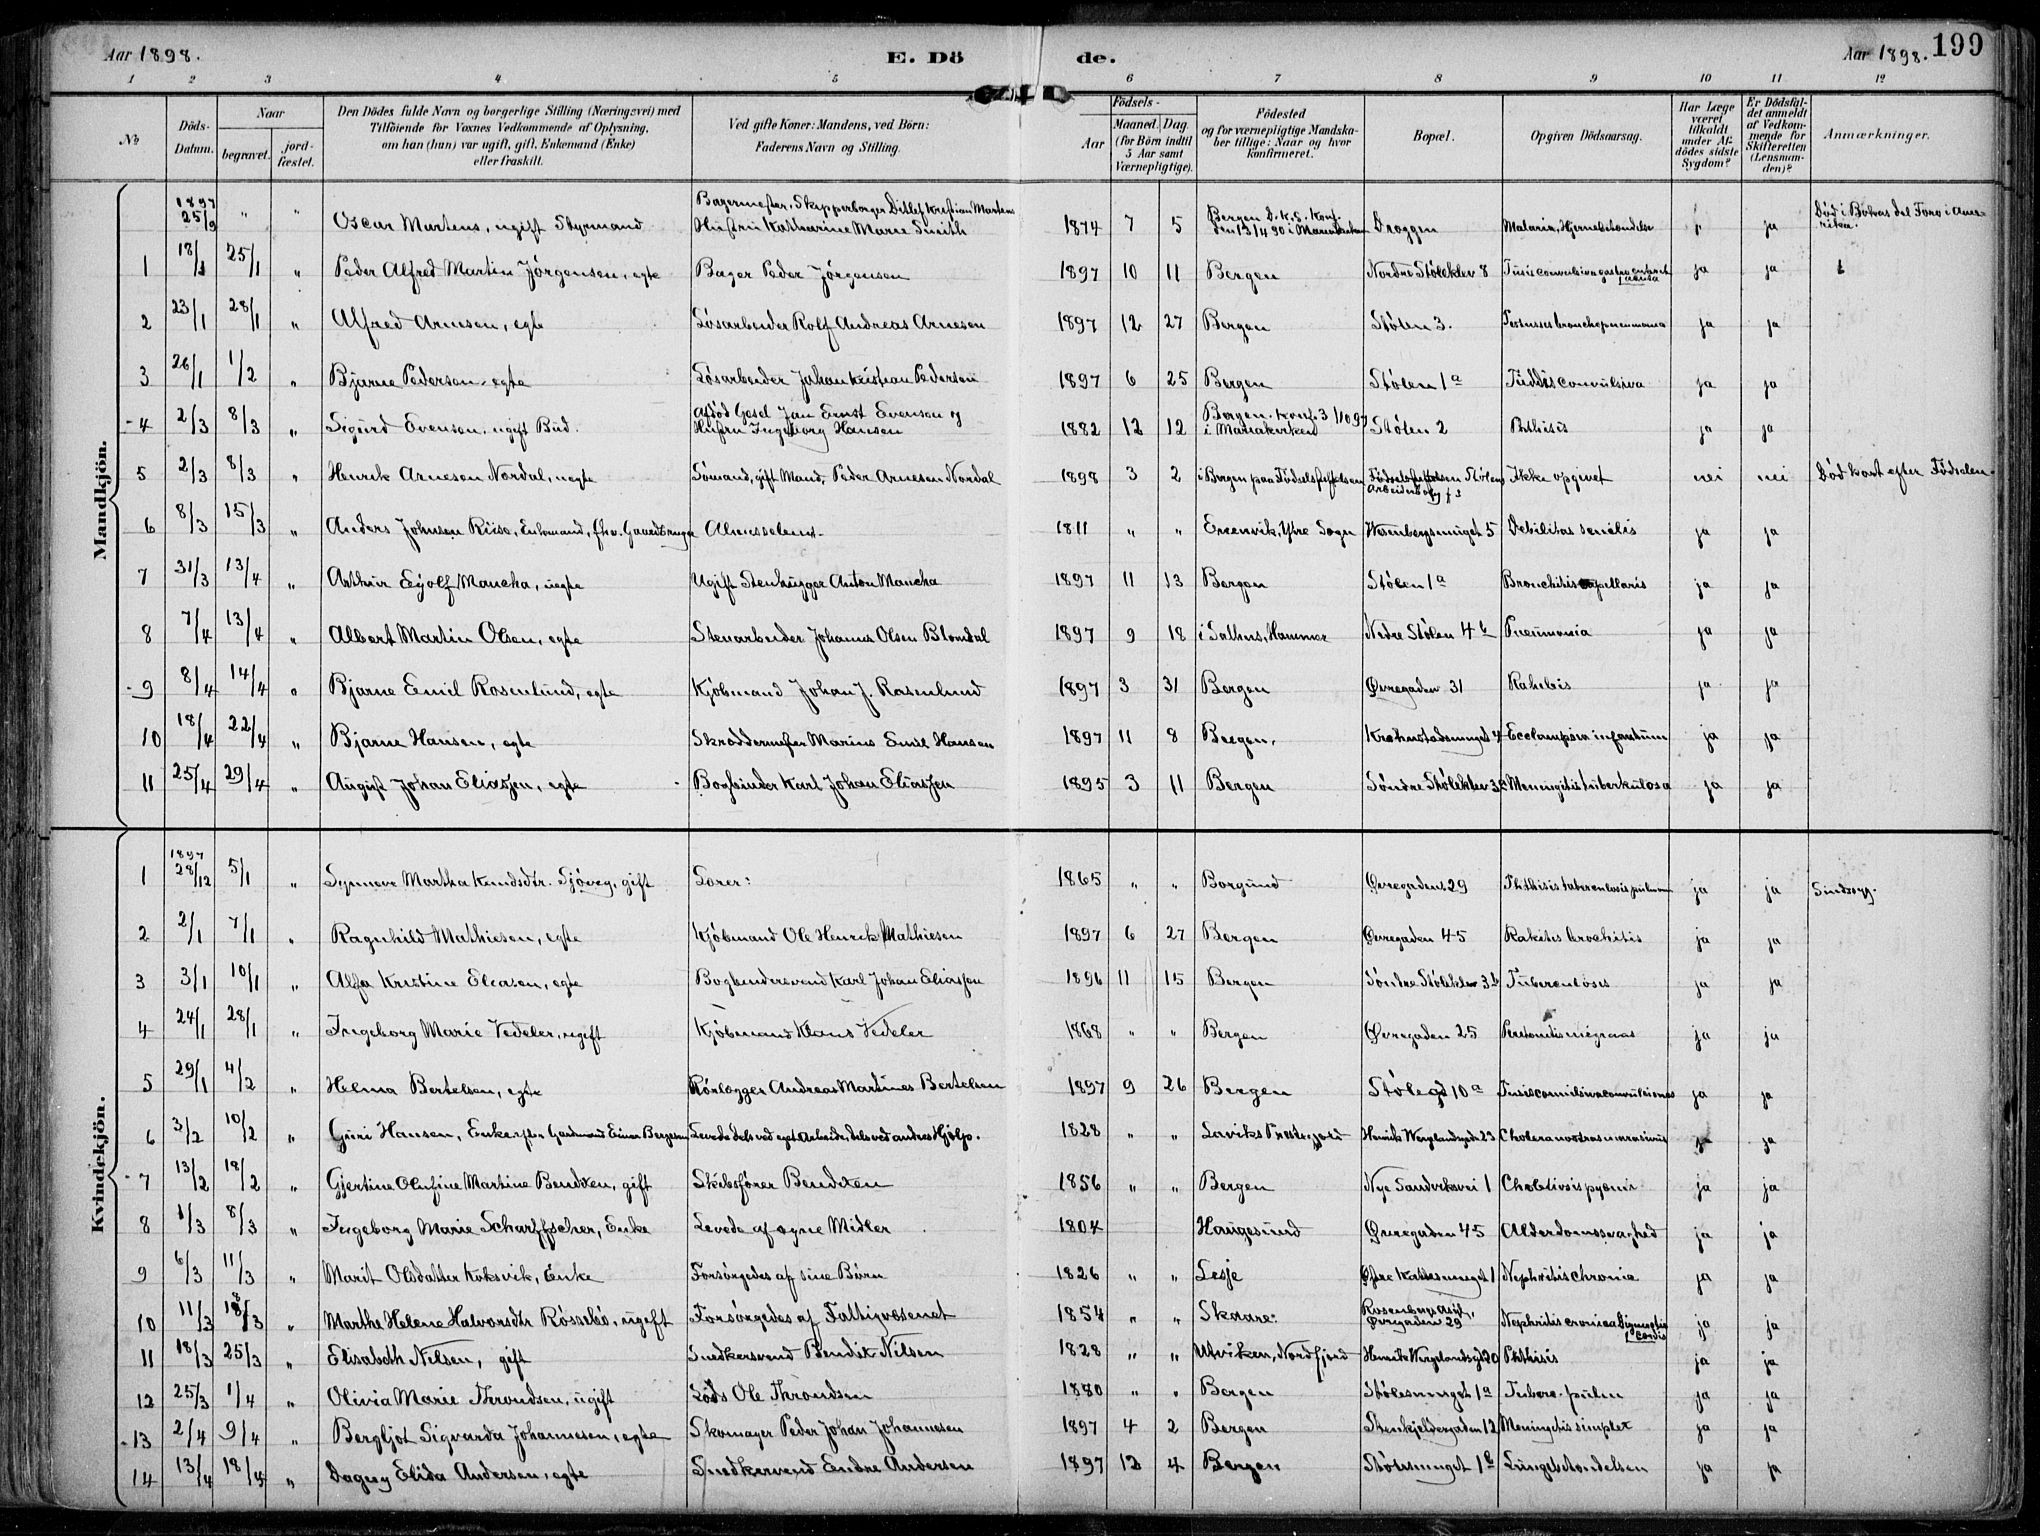 Aar 1898. E. Dö de. Aar 1898. 199
1 2 3 4 5 6 7 8 9 10 11 12
No Döds-Datum. Naar begravet. jord-fæstet. Den Dödes fulde Navn og borgerlige Stilling (Næringsvei) med Tilföiende for Voxnes Vedkommende af Oplysning, om han (hun) var ugift, gift, Enkemand (Enke) eller fraskilt. Ved gifte Koner: Mandens, ved Börn: Faderens Navn og Stilling. Födsels- Aar Maaned. Dag. (for Börn indtil 5 Aar samt Værnepligtige). Födested og for værnepligtige Mandskaber tillige: Naar og hvor konfirmeret. Bopæl. Opgiven Dödsaarsag. Har Læge været tilkaldt under Afdödes sidste Sygdom? Er Dödsfaldet anmeldt af Vedkommende for Skifteretten (Lensmanden)? Anmærkninger.
Mandkjön.
1897 25/9 " " Oscar Martens, ugift Styrmand Bagermester, Skipperborger Ditlef Kristian Martens Hustru Katharine Marie Smith 1874 7 5 Bergen D.K.S. Konf. i Mariakirken Dreggen Malaria, ja Död i
1 18/1 25/1 " Peder Alfred Martin Jörgensen, egte Bager Peder Jörgensen 1897 10 11 Bergen Nordre Stöleklev 8 Tusis convulsiva ja ja
2 23/1 28/1 " Alfred Arnesen, egte Lösarbeider Rolf Andreas Arnesen 1897 12 27 Bergen Stölen 3. bronchopneumonia ja ja
3 26/1 1/2 " Bjarne Pedersen, egte Lösarbeider Johan Kristian Pedersen 1897 6 25 Bergen Stölen 1a Tussis convulsiva ja ja
4 2/3 8/3 " Sigurd Evensen, ugift Bud. Afdöd Gesel Jan Ernst Evensen og Hustru Ingeborg Hansen 1882 12 12 Bergen. Konf. 3/10 97 i Mariakirken Stölen 2 Phthisis ja ja
5 2/3 8/3 " Henrik Arnesen Nordal, uegte Sömand, gift Mand, Peder Arnesen Nordal 1898 3 2 i Bergen paa Födselsstiftelsen Stölen Ikke opgivet nei nei Död kort efter Födselen.
6 8/3 15/3 " Anders Johnsen Riise, Enkemand, fhv. Gaardbruger Almisselem. 1811 " " Evenvik, Ytre Sogn Wesenbergsmuget 5 Debilitas senilis ja ja
7 31/3 13/4 " Arthur Eyolf Mancha, uegte Ugift Stenhugger Anton Mancha 1897 11 13 Bergen Stölen 1a Bronchitis capillaris ja ja
8 7/4 13/4 " Albert Martin Olsen, egte Stenarbeider Johannes Olsen Blomdal 1897 9 18 i Hammer Nedre Stölen 4b Pneumonia ja ja
9 8/4 14/4 " Bjarne Emil Rosenlund, egte Kjöbmand Johan J. Rosenlund 1897 3 31 Bergen Øvregaden 31 Rakitis ja ja
10 18/4 22/4 " Bjarne Hansen, egte Skreddermester Marius Emil Hansen 1897 11 8 Bergen, Krohnstadsmuget 4 Ecclampsia infantum ja ja
11 25/4 29/4 " August Johan Eliassen, egte Bogbinder Karl Johan Eliassen 1895 3 11 Bergen Söndre Stöleklev 3b Meningitis tuberkulosa ja ja
Kvindekjön.
1 1897 28/12 5/1 " Synneve Martha Knudsdtr. Sjöveg, gift 1865 " " Borgund Øvregaden 29 Phthisis tuberculosis pulmon ja ja Sindssyg.
2 2/1 7/1 " Ragnhild Mathiesen, egte Kjöbmand Ole Henrik Mathiesen 1897 6 27 Bergen Øvregaden 45 Rakitis brochitis ja ja
3 3/1 10/1 " Alfa Kristine Eliasen, egte Bogbindersvend Karl Johan Eliassen 1896 11 15 Bergen Söndre Stöleklev 3b Tuberculosis ja ja
4 24/1 28/1 " Ingeborg Marie Vedeler, ugift Kjöbmand Klaus Vedeler 1868 " " Bergen Øvregaden 25 ja ja
5 29/1 4/2 " Helma Bertelsen, egte Rörlægger Andreas Martines Bertelsen 1897 9 26 Bergen Stölegd 10a ja ja
6 3/2 10/2 " Guri Hansen, Enke efter Gaardmand Einar Bergesen Levede dels ved eget Arbeide, dels ved andres Hjelp. 1828 " " Laviks Prestegjeld Henrik Wergelandsgd 23 Cholera nostras ja ja
7 13/2 18/2 " Gjertine Olufine Martine Bendixen, gift Skibsförer Bendixen 1856 " " Bergen Nye Sandviksvei 1 ja ja
8 1/3 8/3 " Ingeborg Marie Scharffscher, Enke Levede af egne Midler 1804 Haugesund Øvregaden 45 Alderdomssvaghed ja ja
9 6/3 11/3 " Marit Olsdatter Koksvik, Enke Forsörgedes af sine Börn 1826 " " Lesje Øvre 1 Nephritis chronic ja ja
10 11/3 18/3 " Marthe Helene Halvorsdtr Rössebö, ugift Forsörgedes af Fattigvæsenet 1854 " " Skaare: Rosenbergs Asyl, Øvregaden 29 Nephritis cronica cordis ja ja
11 18/3 25/3 " Elisabeth Nilsen, gift Snedkersvend Bendik Nilsen 1828 " " Utviken, Nordfjord Henrik Wergelandsgd 20 Phthisis ja ja
12 25/3 1/4 " Olivia Marie Throndsen, ugift Lods Ole Throndsen 1880 " " Bergen Stölesmuget 1a Tuberc. pulm ja ja
13 2/4 9/4 " Bergljot Sigvarda Johannesen, egte Skomager Peder Johan Johannesen 1897 4 2 Bergen Stenkjeldergaden 12 Meningitis simplex ja ja
14 13/4 18/4 " Dagny Elida Andersen, egte Snedkersvend Endre Andersen 1897 12 4 Bergen Stölesmuget 1b Lungebetændelsen ja ja